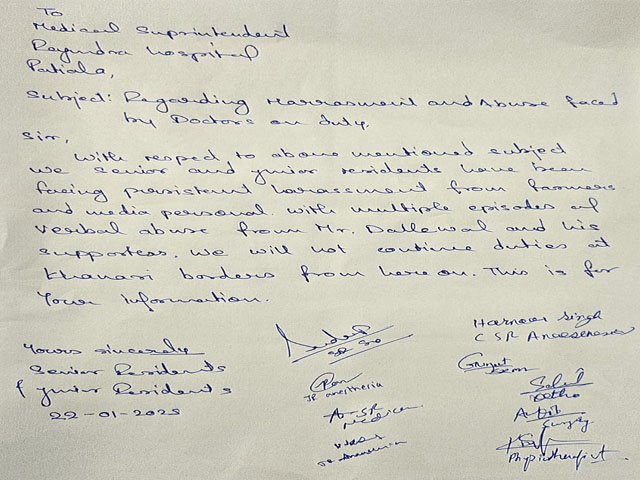 To
Medical Suprintendent
Rajindra hospital
Patiala,
Subject: Regarding Harrasment and Abuse faced
by Doctors on duty.
Sir,
With respect to above mentioned subject
we senior and junior residents have been
facing persistent harassment from farmers
and media personal. With multiple episodes of
verbal abuse from Mr. Dallewal and his
supporters. We will not continue duties at
Khanari borders from here on. This is for
Your information.
Yours sincerely
Senior Residents
& Junior Residents
22-01-2025
Harnoor Singh
CSR Anaesthesia
JR anesthesia
SR
Medicine
Ortho
Surgery
Physiotherapist